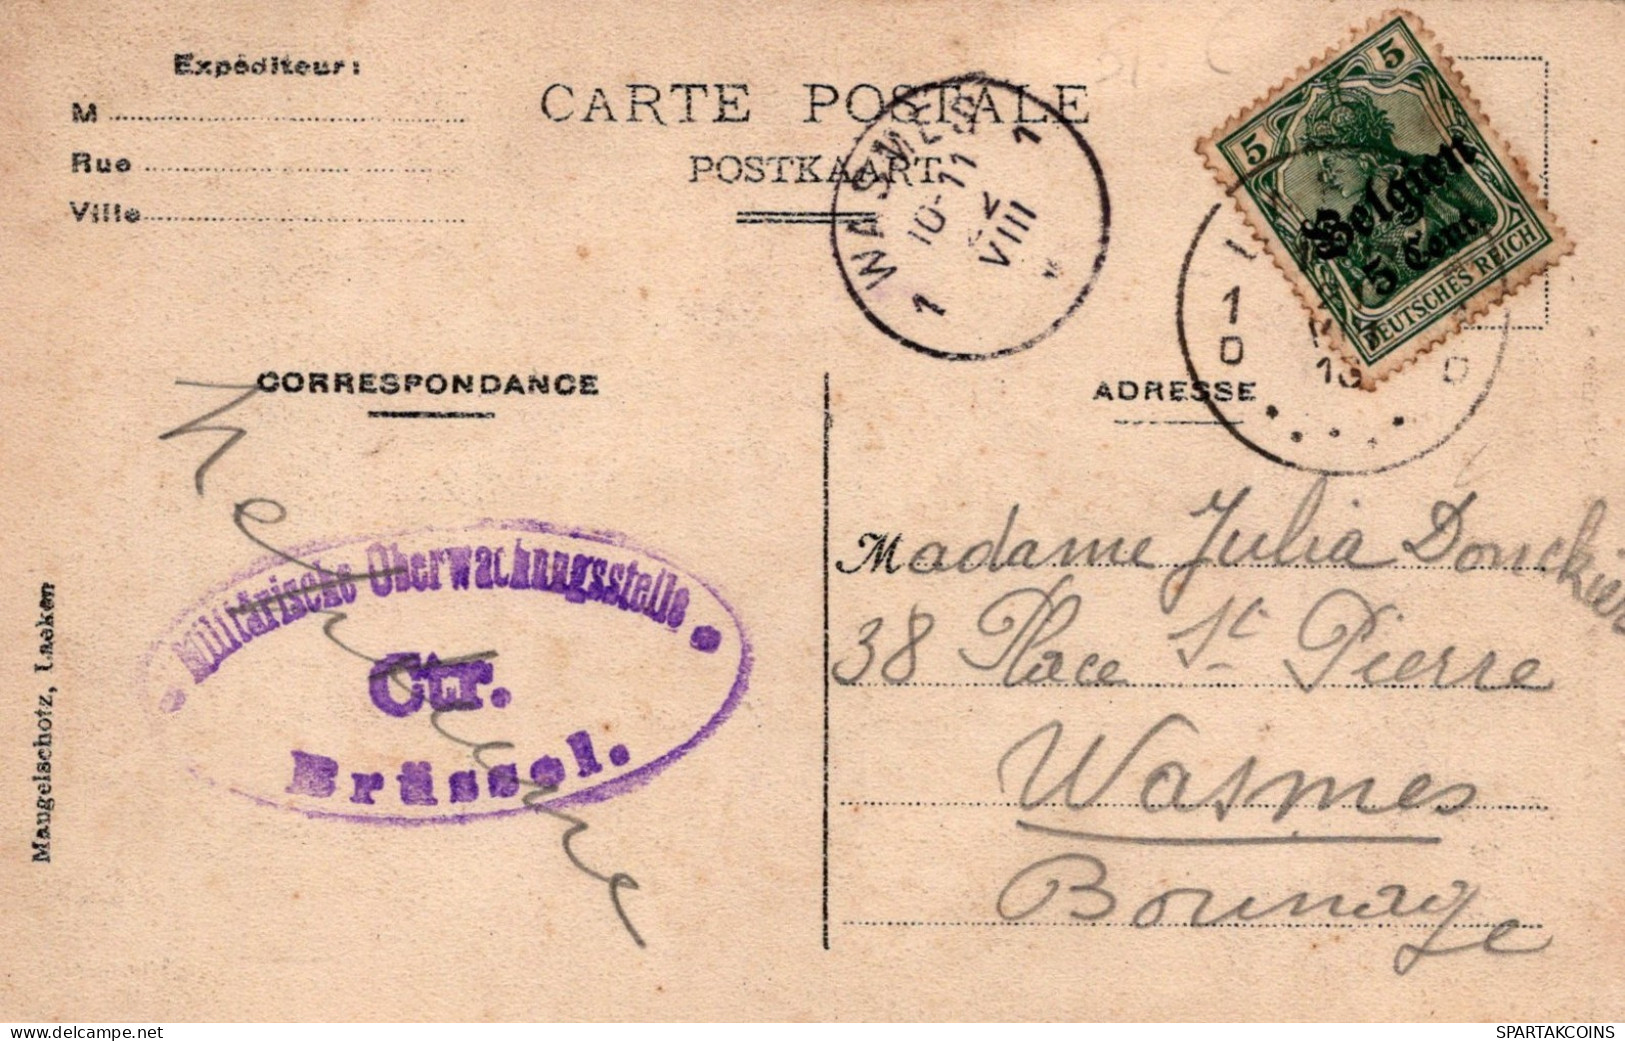 Expéditeur:
M
Rue
Ville
CARTE POSTALE
POSTKAART
1 WASMES 1
10-11
VIII
5
5
Belgien
5 Cent.
DEUTSCHES REICH
1
D
D
CORRESPONDANCE
ADRESSE
Militärische Oberwachungsstelle
Ctr.
Brüssel.
Maugelschotz, Laeken
Madame Julia Donckier
38 Place St Pierre
Wasmes
Borinage
SPARTAKCOINS